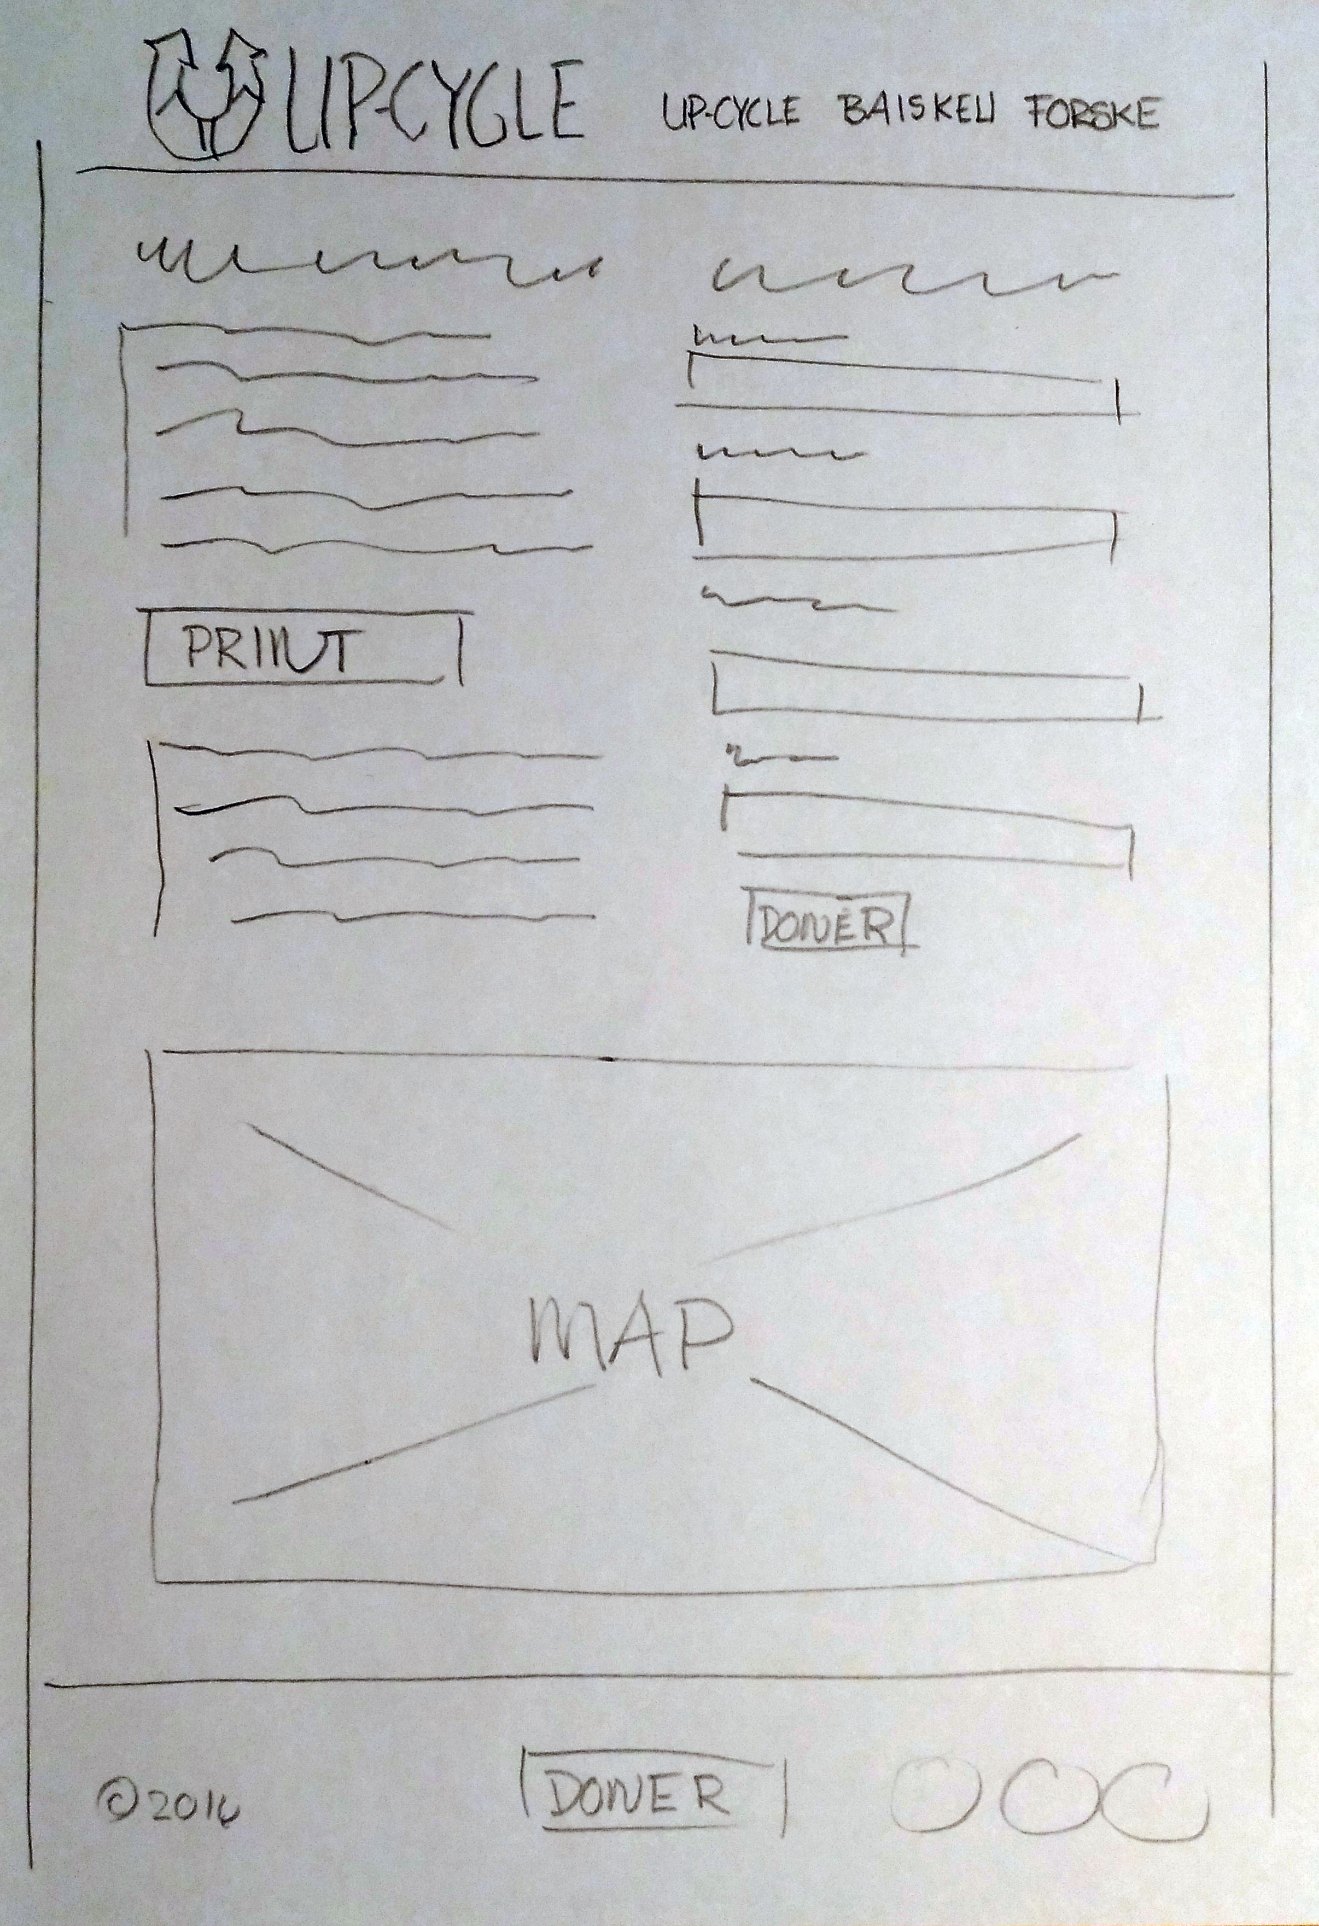 UP-CYCLE UP-CYCLE BAISKELI FORSKE
PRINT
DONER
MAP
©2016 DONER